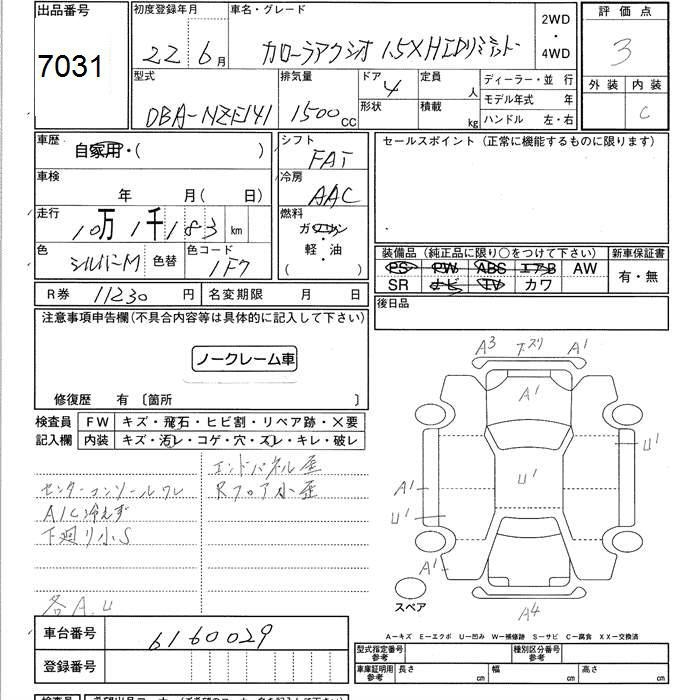 出品番号
7031
初度登録年月
22年 6月
車名・グレード
カローラアクシオ 1.5X HIDリミテット
2WD
・
4WD
評価点
3
外装 内装
C
型式
DBA-NZE141
排気量
1500cc
ドア
4
形状
定員
人
積載
kg
ディーラー・並行
モデル年式 年
ハンドル 左・右
車歴
自家用・( )
シフト
FAT
セールスポイント(正常に機能するものに限ります)
車検
年 月( 日)
冷房
AAC
走行
10万1千183km
燃料
ガソリン
・
軽・油
( )
色
シルバーM
色替
色コード
1F7
装備品(純正品に限り○をつけて下さい)
新車保証書
PS PW ABS エアB AW
SR ナビ TV カワ
有・無
R券 11230円
名変期限 月 日
後日品
注意事項申告欄(不具合内容等は具体的に記入して下さい)
ノークレーム車
修復歴 有〔箇所 〕
検査員
記入欄
FW キズ・飛石・ヒビ割・リペア跡・×要
内装 キズ・汚レ・コゲ・穴・スレ・キレ・破レ
エンドパネル歪
センターコンソールワレ
Rフロア小歪
A/C冷えず
下廻り小S
各A.U
A3 下スリ A1
A1
U1
A1
U1
U1
A1
A4
スペア
A-キズ E-エクボ U-凹み W-補修跡 S-サビ C-腐食 XX-交換済
車台番号
6160029
登録番号
型式指定番号
参考
種別区分番号
参考
車庫証明用
参考
長さ cm
幅 cm
高さ cm